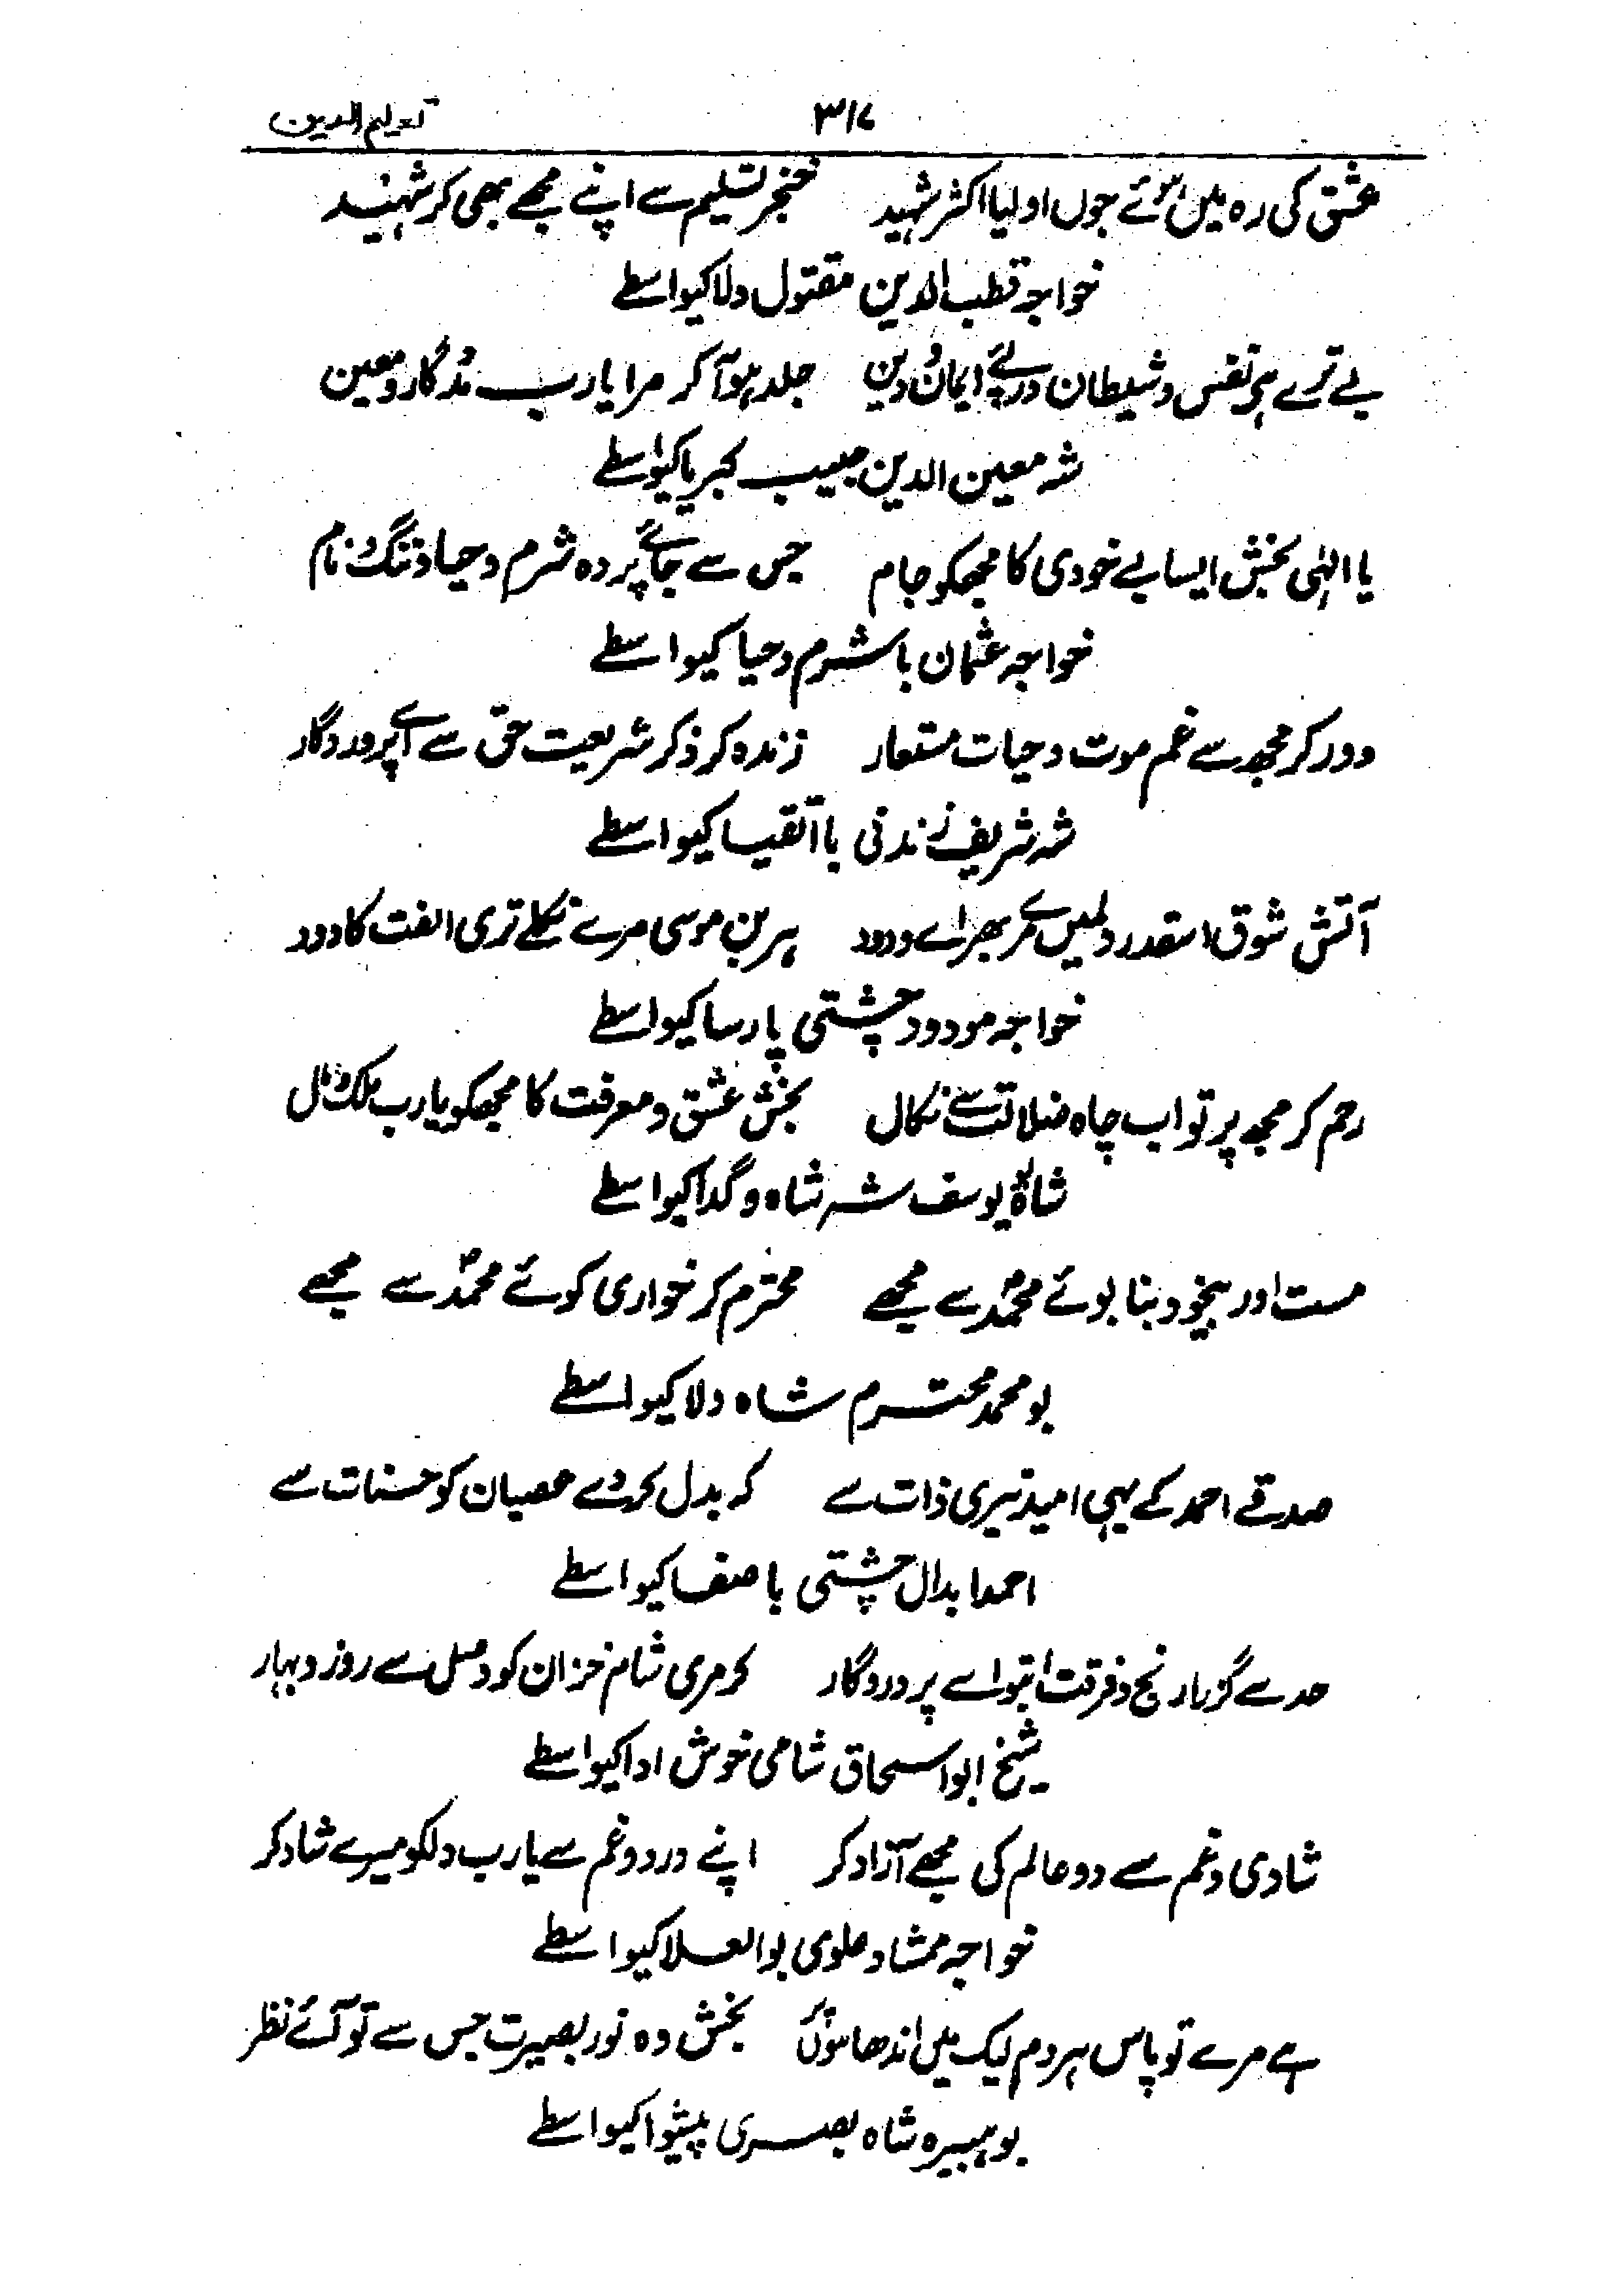 ۳۱۷ تعلیم الدین
عشق کی رہ میں ہوئے جوں اولیا اکثر شہید خنجر تسلیم سے اپنے مجھے بھی کر شہید
خواجہ قطب الدین مقتول ولا کیواسطے
بے ترے ہے نفس و شیطان درپئے ایمان و دین جلد ہو آ کر مرا یارب مددگار و معین
شہ معین الدین حبیب کبریا کیواسطے
یا الٰہی بخش ایسا بے خودی کا مجھکو جام جس سے جائے پردہ شرم و حیا و ننگ و نام
خواجہ عثمان با شرم و حیا کیواسطے
دور کر مجھ سے غم موت و حیات مستعار زندہ کر ذکر شریعت حق سے اے پروردگار
شہ شریف زندنی با اتقیا کیواسطے
آتش شوق اسقدر دلمیں مرے بھر اے ودود ہر بن موسی مرے نکلے تری الفت کا دود
خواجہ مودود چشتی پارسا کیواسطے
رحم کر مجھ پر تو اب چاہ ضلالت سے نکال بخش عشق و معرفت کا مجھکو یارب ملک و مال
شاہ یوسف شہ شاہ و گدا کیواسطے
مست اور بیخود بنا بوئے محمدؐ سے مجھے محترم کر خواری کوئے محمدؐ سے مجھے
بو محمد محترم شاہ ولا کیواسطے
صدقے احمد کے یہی امید تیری ذات سے کہ بدل کر دے عصیان کو حسنات سے
احمد ابدال چشتی با صفا کیواسطے
حد سے گزرا رنج و فرقت ابتو اے پروردگار کر مری شام خزان کو وصل سے روز و بہار
شیخ ابو اسحاق شامی خوش ادا کیواسطے
شادی و غم سے دو عالم کی مجھے آزاد کر اپنے درد و غم سے یارب دلکو میرے شاد کر
خواجہ ممشاد علوی بو العلا کیواسطے
ہے مرے تو پاس ہردم لیک میں اندھا ہوں پر بخش وہ نور بصیرت جس سے تو آئے نظر
بو ہبیرہ شاہ بصری پیشوا کیواسطے